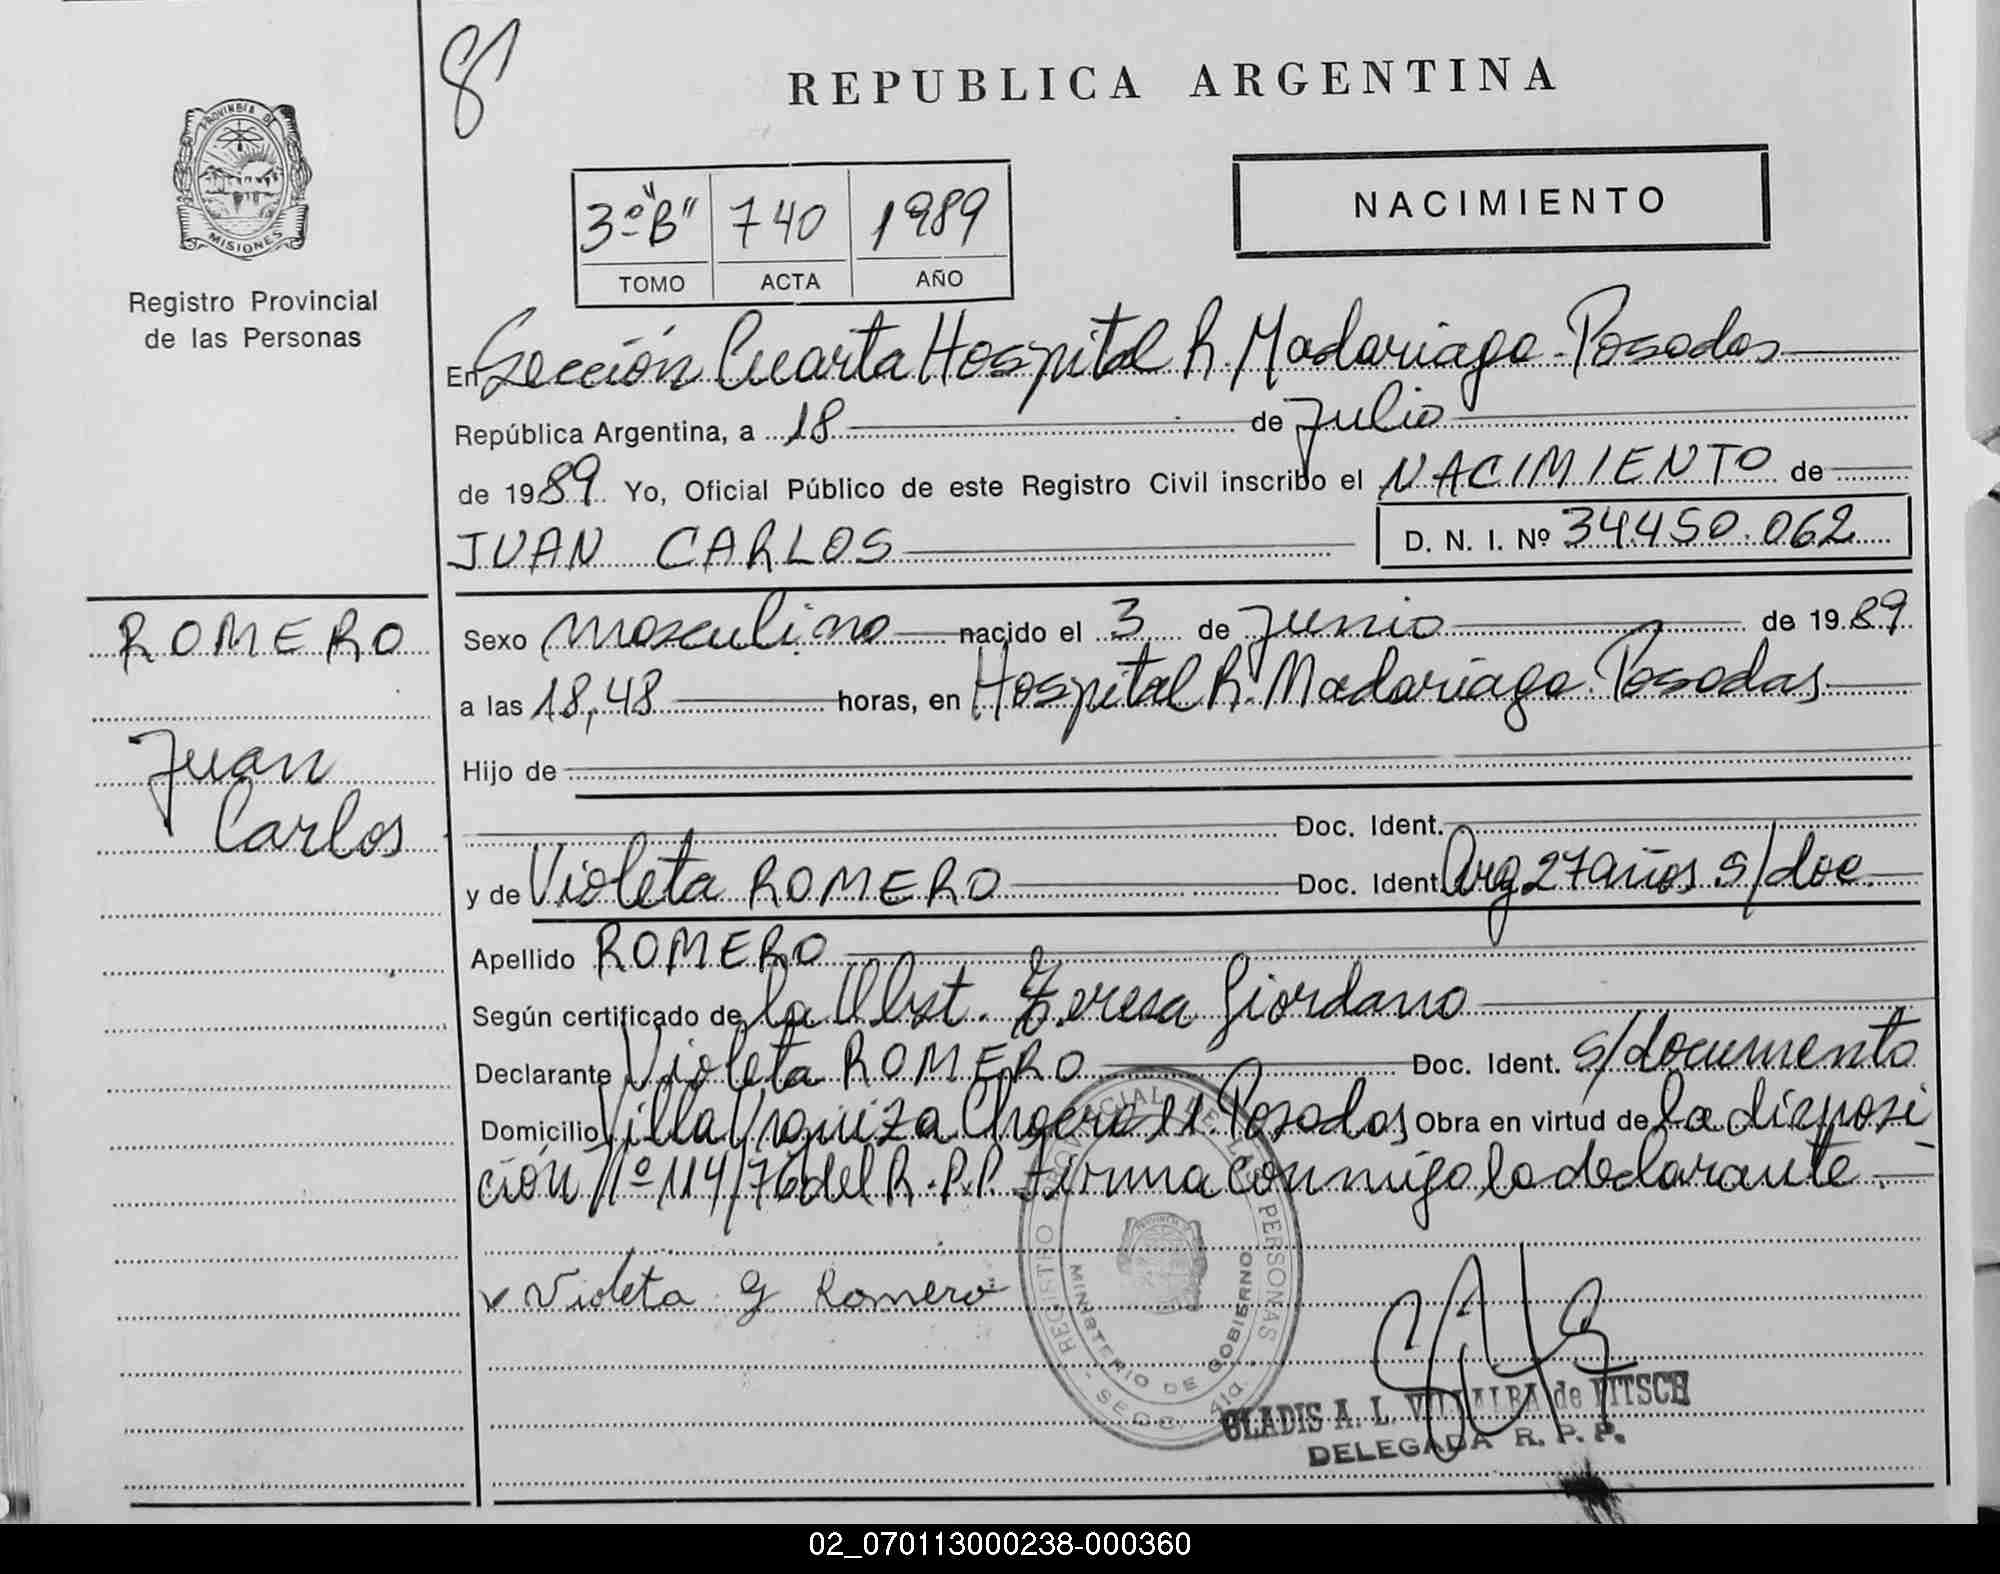 81
REPUBLICA ARGENTINA
PROVINCIA DE
MISIONES
Registro Provincial
de las Personas
3º "B" 740 1989
TOMO ACTA AÑO
NACIMIENTO
En Sección Cuarta Hospital R. Madariaga - Posadas
República Argentina, a 18 de Julio
de 1989 Yo, Oficial Público de este Registro Civil inscribo el NACIMIENTO de
JUAN CARLOS D. N. I. Nº 34.450.062
ROMERO
Juan
Carlos
Sexo masculino nacido el 3 de Junio de 1989
a las 18,48 horas, en Hospital R. Madariaga. Posadas
Hijo de
Doc. Ident.
y de Violeta ROMERO Doc. Ident. Arg 27 años s/doc.
Apellido ROMERO
Según certificado de la Obst. Teresa Giordano
Declarante Violeta ROMERO Doc. Ident. s/documento
Domicilio Villa Urquiza Posadas Obra en virtud de la disposi
ción Nº 114/76 del R.P.P. firma conmigo la declarante.
Violeta G Romero
REGISTRO PROVINCIAL DE LAS PERSONAS
MINISTERIO DE GOBIERNO
- SECC. 4ta. -
GLADIS A. L. VILLALBA de PITSCH
DELEGADA R. P. P.
02_070113000238-000360